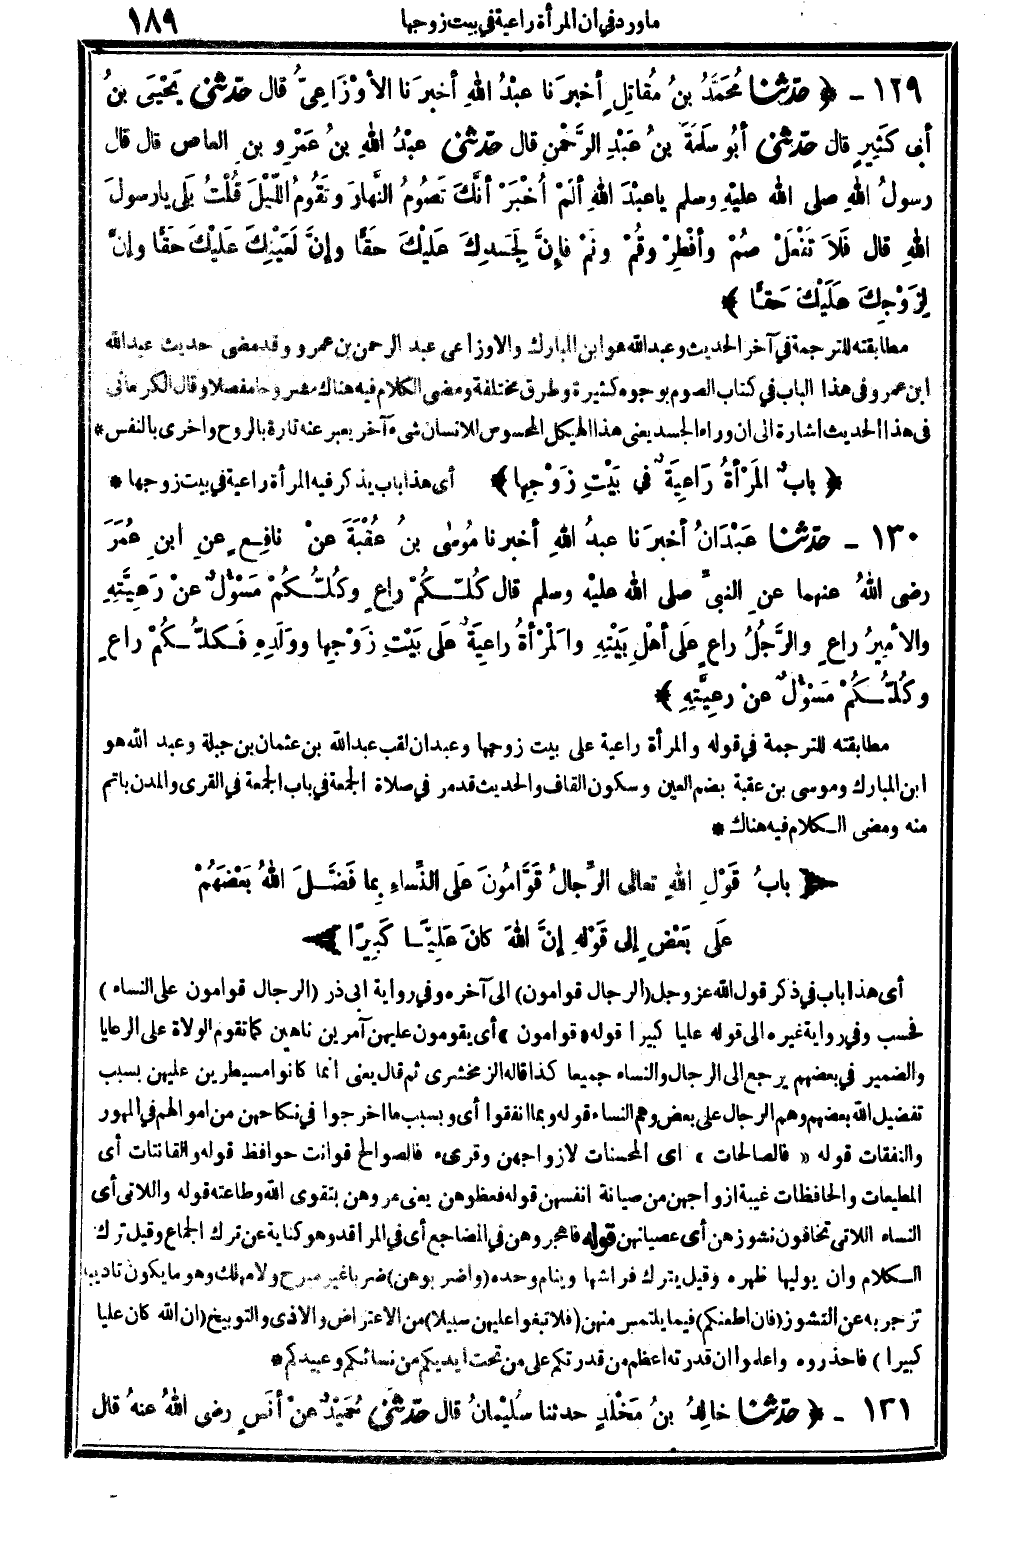 ماورد في أن المرأة راعية في بيت زوجها ١٨٩
١٢٩ - ﴿ حَدَّثَنَا مُحَمَّدُ بنُ مُقَاتِلٍ أخبرَنا عبْدُ اللهِ أخبرَنا الأوْزَاعِيُّ قال حَدَّثني يَحْيَى بنُ
أبى كَثِيرٍ قال حَدَّثنى أبُو سَلَمَةَ بنُ عَبْدِ الرَّحْمٰنِ قال حَدَّثنى عبْدُ اللهِ بنُ عَمْرِو بنِ العاصِ قال قال
رسولُ اللهِ صلى الله عليْهِ وسلم ياعبْدَ اللهِ ألَمْ أُخْبَرْ أنَّكَ تَصُومُ النَّهارَ وتَقُومُ اللَّيْلَ قُلْتُ بَلَى يارسولَ
اللهِ قال فَلاَ تَفْعَلْ صُمْ وأفْطِرْ وقُمْ ونَمْ فإنَّ لِجَسدِكَ عَلَيْكَ حَقًّا وإنَّ لِعَيْنِكَ عَلَيْكَ حَقًّا وإنَّ
لِزَوْجِكَ عَلَيْكَ حَقًّا ﴾
مطابقته للترجمة في آخر الحديث وعبدالله هو ابن المبارك والاوزاعى عبد الرحمن بن عمرو وقد مضى حديث عبدالله
ابن عمرو فى هذا الباب في كتاب الصوم بوجوه كثيرة وطرق مختلفة ومضى الكلام فيه هناك مشروحا مفصلا وقال الكرمانى
فى هذا الحديث اشارة الى ان وراء الجسد يعنى هذا الهيكل المحسوس للانسان شىء آخر يعبر عنه تارة بالروح واخرى بالنفس *
﴿ بابٌ المَرْأةُ رَاعِيَةٌ في بَيْتِ زَوْجِها ﴾ أى هذا باب يذكر فيه المرأة راعية في بيت زوجها *
١٣٠ - حَدَّثَنَا عَبْدَانُ أخبرَنا عبدُ اللهِ أخبرنا مُوسٰى بنُ عُقْبَةَ عنْ نافِعٍ عنِ ابنِ عُمَرَ
رضى اللهُ عنهما عنِ النبىِّ صلى الله عليْه وسلم قال كُلُّـكُمْ راعٍ وكُلُّـكُمْ مَسْؤُلٌ عنْ رَعِيَّتِهِ
والأمِيرُ راعٍ والرَّجُلُ راعٍ عَلَى أهْلِ بَيْتِهِ والمَرْأةُ راعِيَةٌ عَلَى بَيْتِ زَوْجِها ووَلَدِهِ فَـكلُّـكُمْ راعٍ
وكُلُّـكُمْ مَسْؤُلٌ عنْ رعِيَّتِهِ ﴾
مطابقته للترجمة في قوله والمرأة راعية على بيت زوجها وعبدان لقب عبدالله بن عثمان بن جبلة وعبد الله هو
ابن المبارك وموسى بن عقبة بضم العين وسكون القاف والحديث قد مر في صلاة الجمعة في باب الجمعة في القرى والمدن باتم
منه ومضى الـكلام فيه هناك *
﴿ بابُ قَوْلِ اللهِ تعالى الرِّجالُ قَوَّامُونَ عَلَى النِّساءِ بِما فَضَّـلَ اللهُ بَعْضَهُمْ
عَلَى بَعْضٍ إلى قَوْلِهِ إنَّ اللهَ كانَ عَلِيًّـا كَبِيرًا ﴾
أى هذا باب في ذكر قول الله عز وجل (الرجال قوامون) الى آخره وفي رواية ابى ذر (الرجال قوامون على النساء )
فحسب وفي رواية غيره الى قوله عليا كبيرا قوله «قوامون » أى يقومون عليهن آمرين ناهين كما تقوم الولاة على الرعايا
والضمير في بعضهم يرجع الى الرجال والنساء جميعا كذا قاله الزمخشرى ثم قال يعنى انما كانوا مسيطرين عليهن بسبب
تفضيل الله بعضهم وهم الرجال على بعض وهم النساء قوله وبما انفقوا أى وبسبب ما اخرجوا في نكاحهن من اموالهم في المهور
والنفقات قوله « فالصالحات » اى المحسنات لازواجهن وقرىء فالصوالح قوانت حوافظ قوله والقانتات أى
المطيعات والحافظات غيبة ازواجهن من صيانة انفسهن قوله فعظوهن يعنى مروهن بتقوى الله وطاعته قوله واللاتى أى
النساء اللاتى تخافون نشوزهن أى عصيانهن قوله فاهجروهن في المضاجع أى في المراقد وهو كناية عن ترك الجماع وقيل ترك
الـكلام وان يوليها ظهره وقيل يترك فراشها وينام وحده (واضربوهن) ضربا غير مبرح ولا مهلك وهو ما يكون تاديبا
تزجر به عن النشوز (فان اطعنكم) فيما يلتمس منهن (فلا تبغوا عليهن سبيلا) من الاعتراض والاذى والتوبيخ (ان الله كان عليا
كبيرا ) فاحذروه واعلموا ان قدرته اعظم من قدرتكم على من تحت ايديكم من نسائكم وعبيدكم *
١٣١ - ﴿ حَدَّثَنَا خالِدُ بنُ مَخْلَدٍ حدثنا سُلَيْمانُ قال حَدَّثَنى حُمَيْدٌ عنْ أنَسٍ رضى اللهُ عنهُ قال